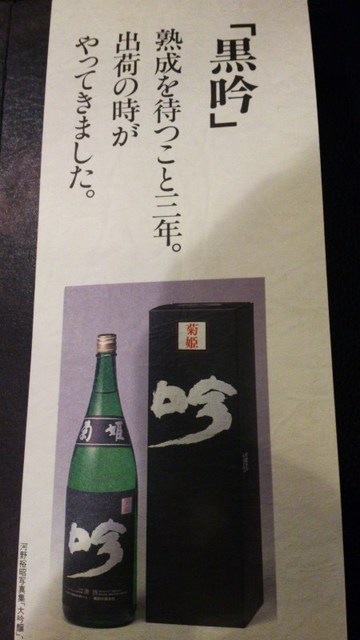 「黒吟」
熟成を待つこと三年。
出荷の時が
やってきました。
菊姫
吟
菊姫
吟
河野裕昭写真集「大吟醸」